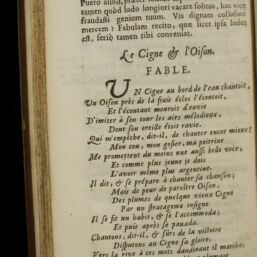 Puero aliud, præter
tamen quod ludo longiori vacare solitus, hac vice
fraudasti genium tuum. Vis dignam collusore
mercem? Fabulam recito, quæ licet ipsa ludus
est, seriò tamen tibi conveniat.
Le Cigne & l'Oison.
FABLE.
UN Cigne au bord de l'eau chantoit,
Un Oison près de là sous éclos l'écoutoit,
Et l'écoutant mouroit d'envie
D'imiter à son tour les airs mélodieux,
Dont son oreille étoit ravie.
Qui m'empêche, dit-il, de chanter encor mieux?
Mon cou, mon gosier, ma poitrine
Me promettent du moins une aussi belle voix;
Et comme plus jeune je dois
L'avoir même plus argentine.
Il dit, & se prépare à chanter sa chanson;
Mais de peur de paroître Oison,
Des plumes de quelque vieux Cigne
Par un stratageme insigne
Il se fit un habit, & se l'accommoda;
Et puis après se panada.
Chantons, dit-il, & sûrs de la victoire
Disputons au Cigne sa gloire.
Vers la rive à ces mots dandinant il marche,